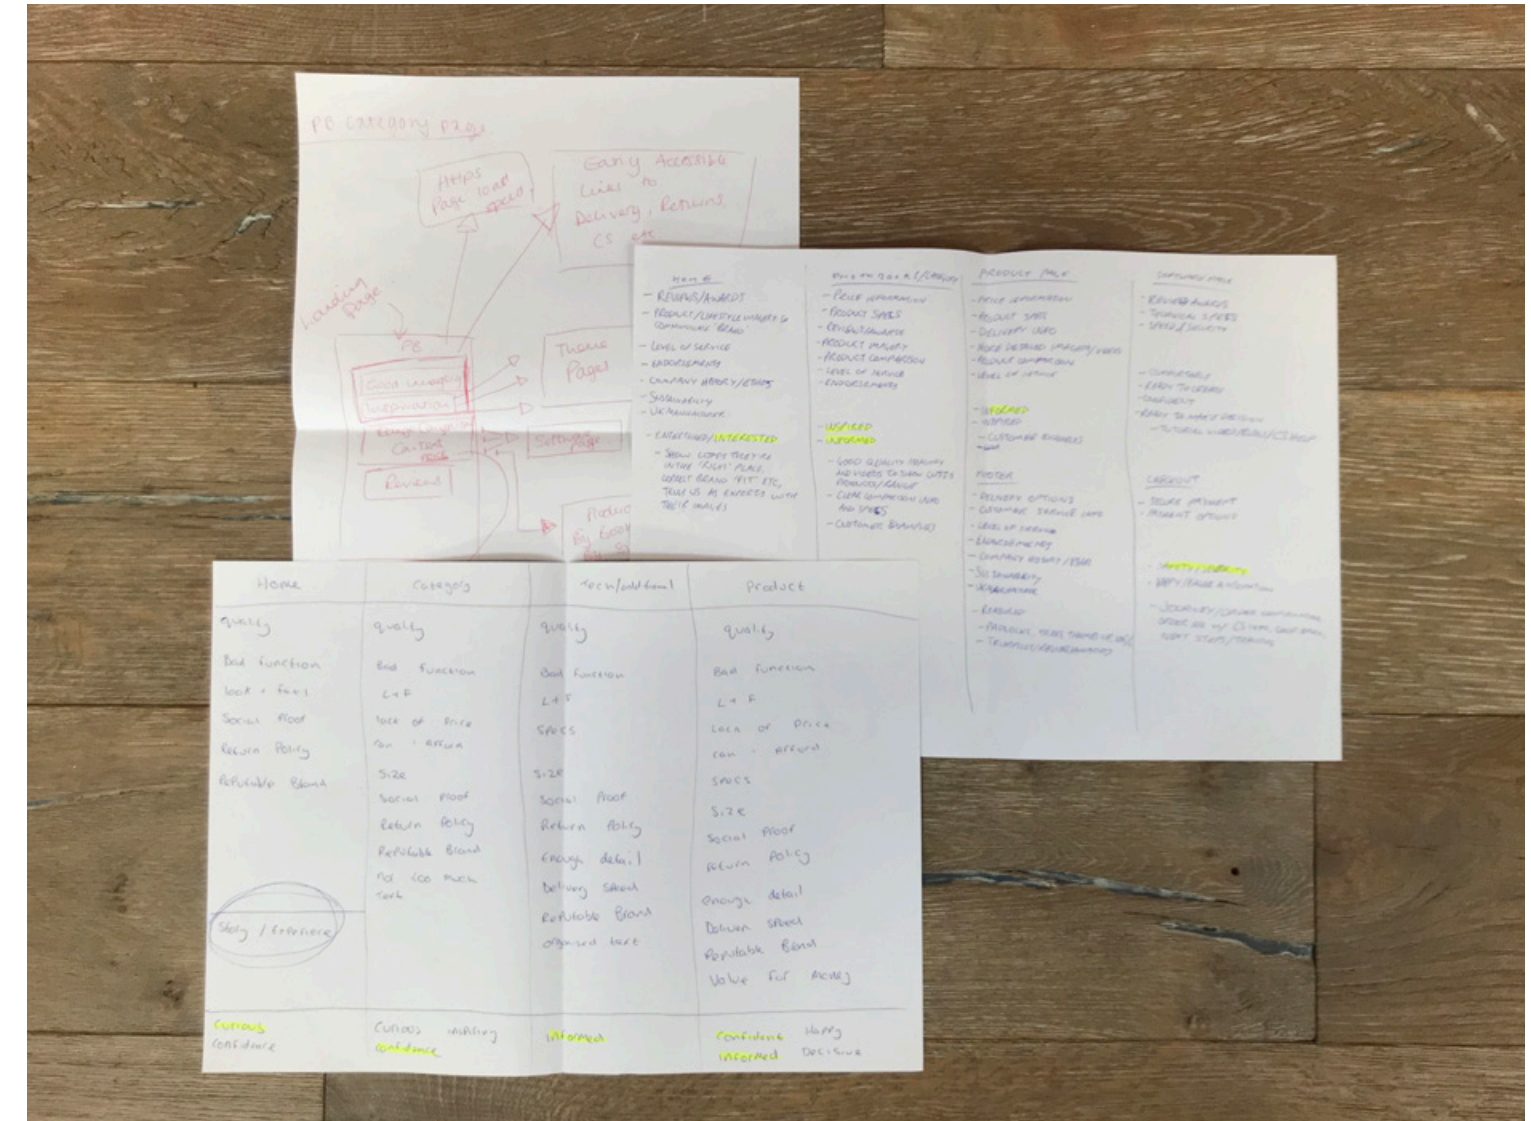 PB Category Page
Https
Page load
speed
Easily Accessible
Links to
Delivery, Returns,
CS etc
Landing
Page
PB
Good imagery
Inspiration
Theme
Pages
Content
Software
Page
Reviews
Produc
By
By
HOME
- REVIEWS/AWARDS
- PRODUCT/LIFESTYLE IMAGERY TO
COMMUNICATE 'BRAND'
- LEVEL OF SERVICE
- ENDORSEMENTS
- COMPANY HISTORY/ETHOS
- SUSTAINABILITY
- UK MANUFACTURER
INTERESTED
- SHOW CUSTS THEY'RE
IN THE 'RIGHT' PLACE,
CORRECT BRAND 'FIT' ETC,
TRUST US AS EXPERTS WITH
THEIR IMAGES
PHOTO BOOKS/CATEGORY
- PRICE INFORMATION
- PRODUCT SPECS
- REVIEWS/AWARDS
- PRODUCT IMAGERY
- PRODUCT COMPARISON
- LEVEL OF SERVICE
- ENDORSEMENTS
- INSPIRED
- INFORMED
- GOOD QUALITY IMAGERY
AND VIDEOS TO SHOW CUSTS
PRODUCTS/RANGE
- CLEAR COMPARISON INFO
AND SPECS
- CUSTOMER EXAMPLES
PRODUCT PAGE
- PRICE INFORMATION
- PRODUCT SPECS
- DELIVERY INFO
- MORE DETAILED IMAGERY/VIDEO
- PRODUCT COMPARISON
- LEVEL OF SERVICE
- INFORMED
- INSPIRED
- CUSTOMER EXAMPLES
FOOTER
- DELIVERY OPTIONS
- CUSTOMER SERVICE INFO
- LEVEL OF SERVICE
- ENDORSEMENTS
- COMPANY HISTORY/ETHOS
- SUSTAINABILITY
- UK MANUFACTURER
- REASSURED
- PADLOCKS,
SOFTWARE PAGE
- REVIEWS/AWARDS
- TECHNICAL SPECS
- SPEED/SECURITY
- COMFORTABLE
- READY TO CREATE
- CONFIDENT
- READY TO MAKE DECISION
- TUTORIAL VIDEO
CHECKOUT
- SECURE PAYMENT
- PAYMENT OPTIONS
- SAFETY/SECURITY
Home
quality
Bad function
look + feel
Social Proof
Return Policy
Reputable Brand
Story / Experience
Curious
confidence
Category
quality
Bad function
L + F
lack of Price
can - afford
Size
Social Proof
Return Policy
Reputable Brand
not too much
text
Curious inspiring
confidence
Tech/additional
quality
Bad function
L + F
Specs
Size
Social Proof
Return Policy
Enough detail
Delivery speed
Reputable Brand
organised text
informed
Product
quality
Bad function
L + F
Lack of Price
can - afford
Specs
Size
Social Proof
return Policy
enough detail
Deliver speed
Reputable Brand
Value for Money
Confident Happy
informed Decisive